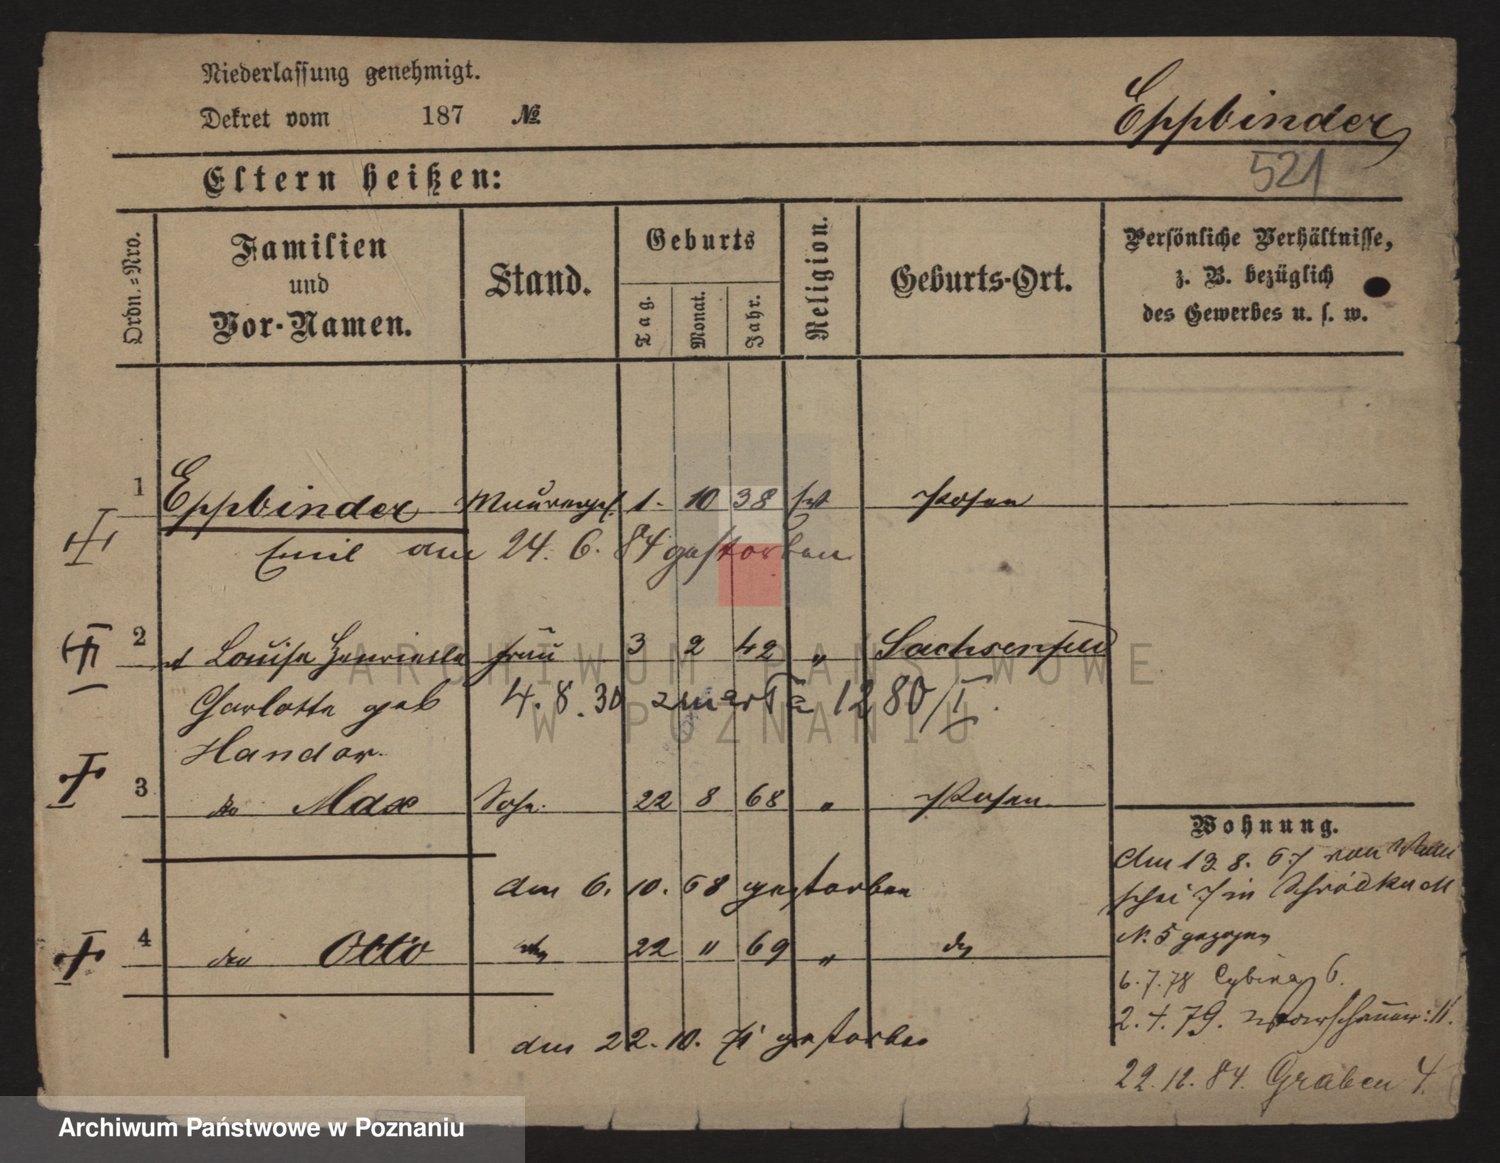 Niederlassung genehmigt.
Dekret vom 187 №
Eppbinder
521
Eltern heißen:
Ordn.-Nro.
Familien
und
Vor-Namen.
Stand.
Geburts
Tag.
Monat.
Jahr.
Religion.
Geburts-Ort.
Persönliche Verhältnisse,
z. B. bezüglich
des Gewerbes u. s. w.
1 Eppbinder Maurerges. 1. 10 38 Posen
Emil am 24. 6. 84 gestorben
2 Louise Henriette Frau 3 2 42 " Sachsenfeld
Charlotte geb 4. 8. 30 zmarła 1280/I.
Handor
3 Max Sohn 22 8 68 " Posen
Wohnung.
den 6. 10. 68 gestorben
4 Otto 22 " 69 "
den 22. 10. 71 gestorben
Am 13 8. 67 von
7 in
N. 5 gezogen
6. 7. 78 Cybina 6.
2. 4. 79.
22. 12. 84. Graben 4.
ARCHIWUM PAŃSTWOWE
W POZNANIU
Archiwum Państwowe w Poznaniu